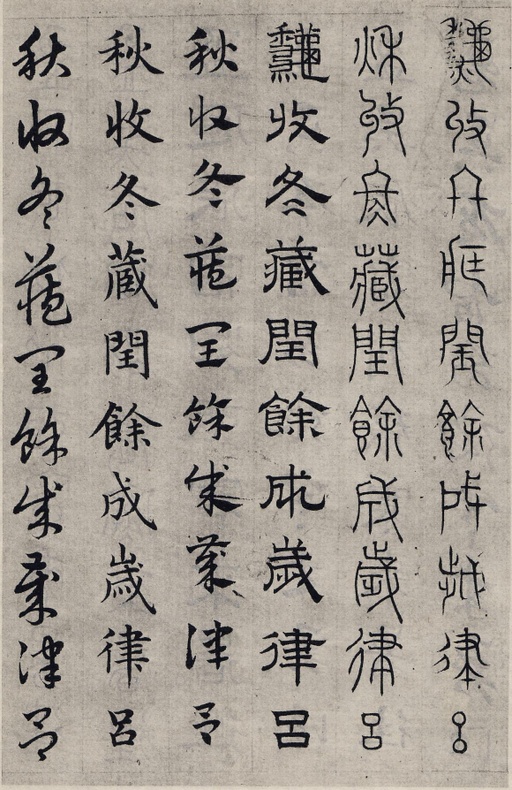 秋收冬藏閏餘成歲律呂
秋收冬藏閏餘成歲律呂
秋收冬藏閏餘成歲律呂
秋收冬藏閏餘成歲律呂
秋收冬藏閏餘成歲律呂
秋收冬藏閏餘成歲律呂